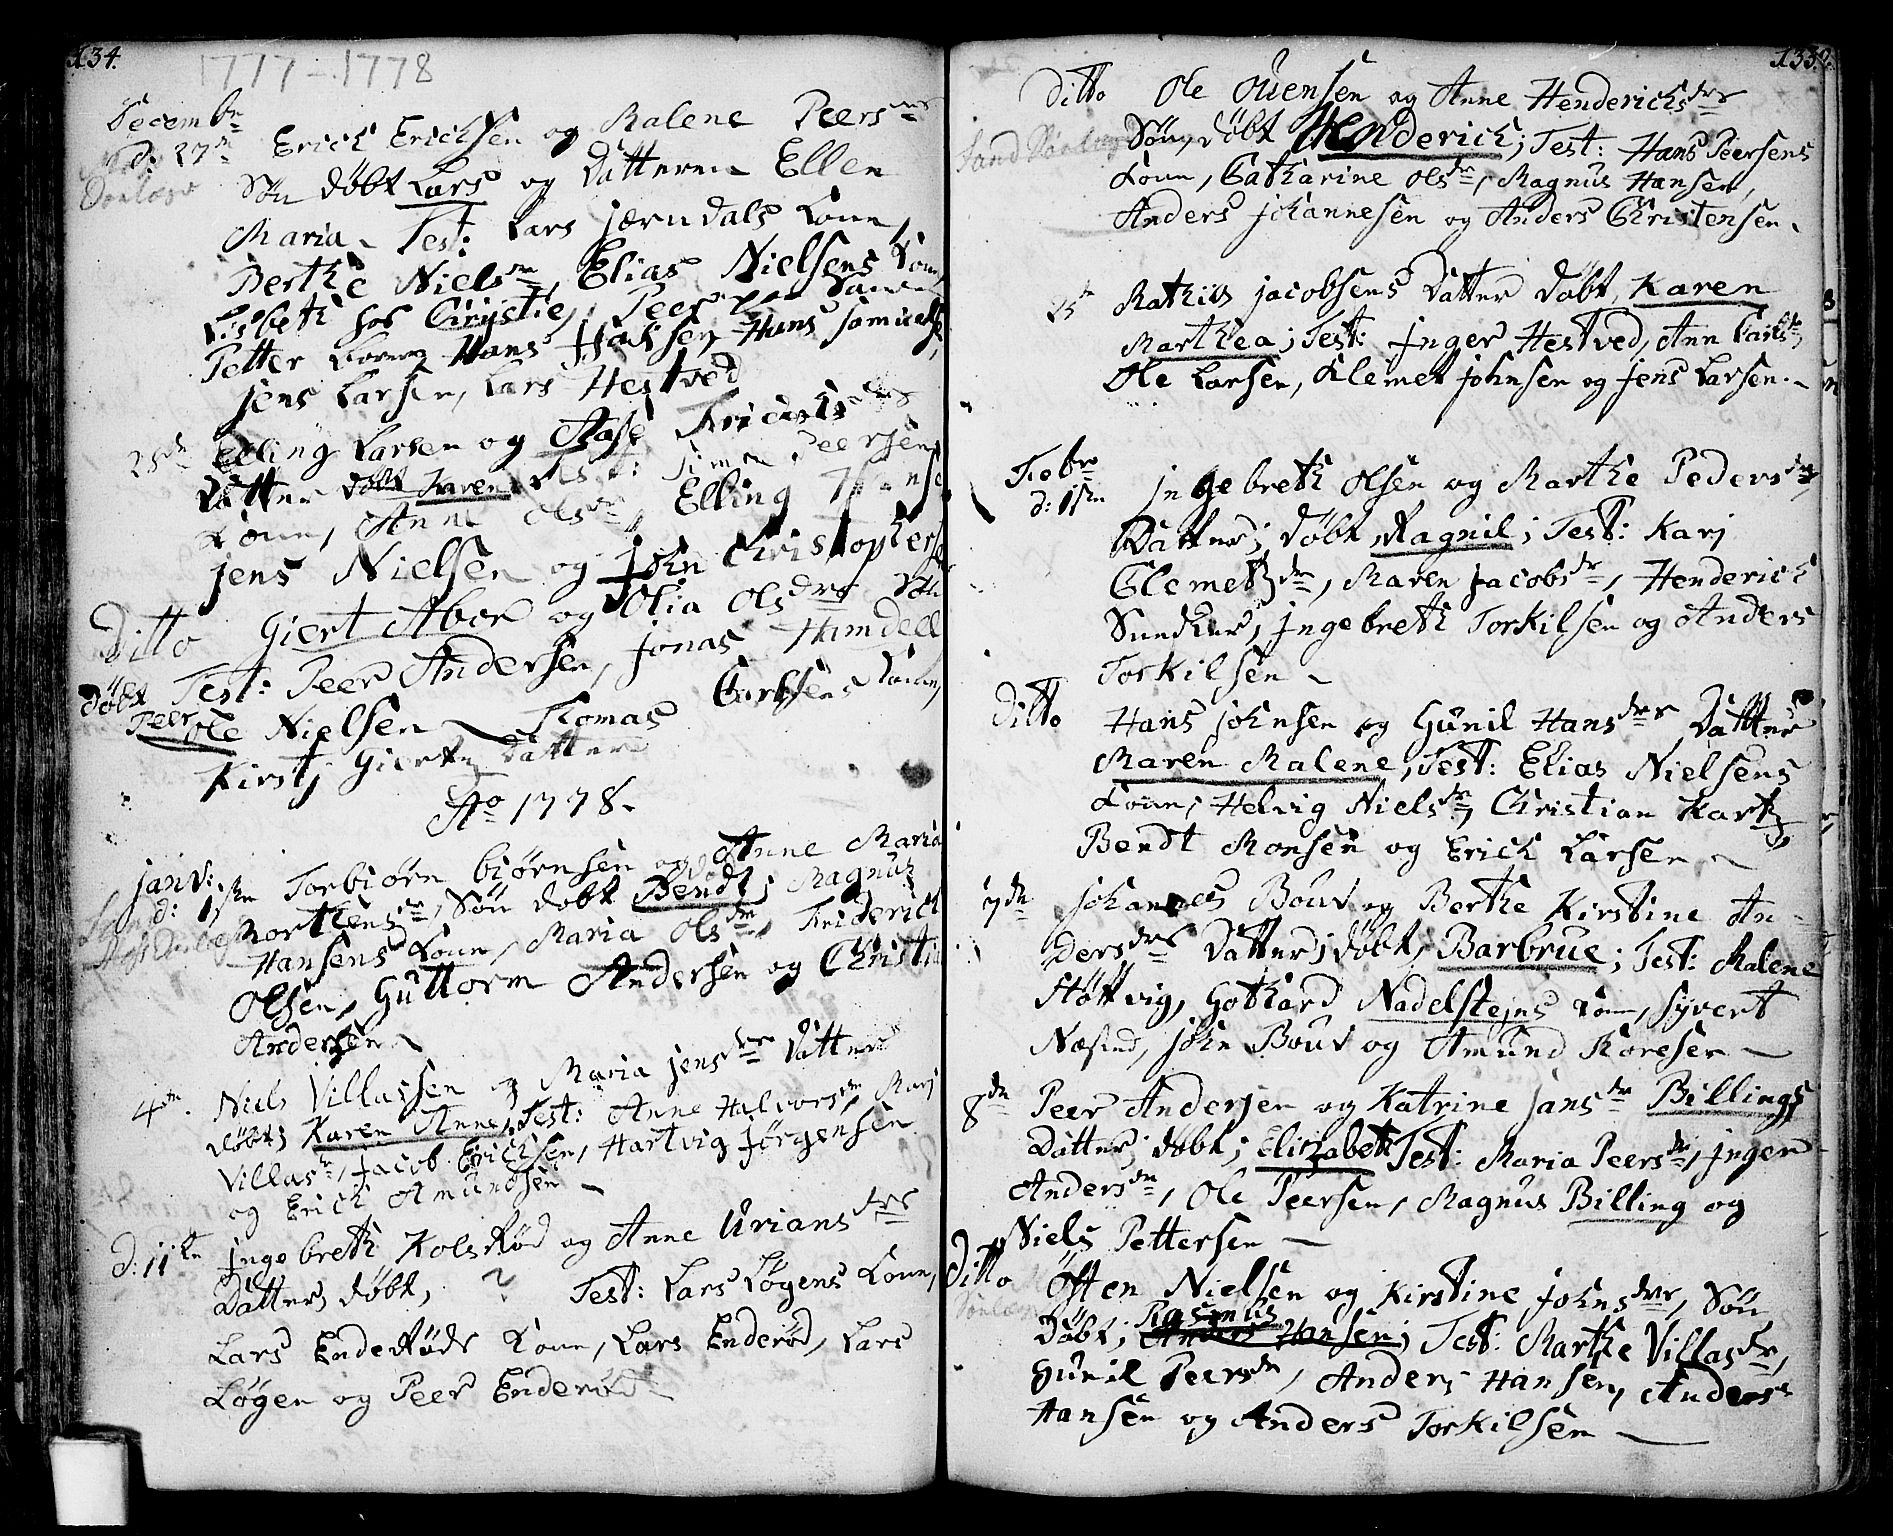 134.
1777-1778
Decembr
d: 27de Erick Ericksen og Malene Peersdrs
Sön döbt Lars og Datteren Ellen
Maria. Test: Lars Jærndals Kone,
Berthe Nielsdr, Elias Nielsens Kone
Lisbeth hos Christie, Peer
Petter Hans Hansen, Hans Samuels
Jens Larsen, Lars Hestved
28de Elling Larsen og Aase Fridricksdrs
Datter döbt Karen Test: Simen Peersens
Kone, Anne Olsdr, Elling Hanse
Jens Nielsen og John Christophers
Ditto Giert Abor og Olia Olsdrs Sön
döbt Test: Peer Andersen, Jonas Hamdell
Peer Ole Nielsen Thomas Carlsens Kone,
Kirstj Giertz Datter
Ao 1778.
Janv:
d: 1ste Torbiörn Biörnsen og Anne Maria
Morthensdr, Sön döbt Bendt; Magnus
Hansens Kone, Maria Olsdr, Friderick
Olsen, Guttorm Andersen og Christia
Andersen
4de. Niels Villassen og Maria Jensdrs Datter
döbt; Karen Anne, Test: Anne Halvorsdr, Marj
Villasdr, Jacob Ericksen, Hartvig Jörgensen
og Erick Amundsen
d: 11te Ingebreth Kolsröd og Anne Uriansdrs
Datter döbt, ? Test: Lars Lögens Kone,
Lars Enderöds Kone, Lars Enderöd, Lars
Lögen og Peer Enderöd
135.
Ditto Ole Ouensen og Anne Hendericksdrs
Sön, döbt Henderich; Test: Hans Peersens
Kone, Catharine Olsdr, Magnus Hansen,
Anders Johannesen og Anders Christensen.
25de Mathias Jacobsens Datter döbt, Karen
Marthea; Test: Inger Hestved, Ann Larsdr,
Ole Larsen, Klemet Johnsen og Jens Larsen.
Febr
d: 1ste Ingebreth Olsen og Marthe Pedersdrs
Datter; döbt, Ragnil; Test: Karj
Clemetzdr, Maren Jacobsdr, Henderich
Sundker, Ingebreth Torkilsen og Anders
Torkilsen
Ditto Hans Johnsen og Gunil Hansdrs Datter
Maren Malene, Test: Elias Nielsens
Kone; Helvig Nielsdr, Christian Kartz,
Bendt Monsen og Erick Larsen
7de Johannes Bouv og Berthe Kirstine An-
dersdrs Datter; döbt, Barbrue; Test: Malene
Stöttvig, Gothard Nadelstejns Kone, Syvert
Næsind, John Bouv og Amund Koresen
8de Peer Andersen og Katrine Jansdr Billings
Datter; döbt; Elizabeth Test: Maria Peersdr, Inger
Andersdr, Ole Peersen, Magnus Billing og
Niels Pettersen
Ditto Östen Nielsen og Kirstine Johnsdrs, Sön
Rasmus
Döbt; Anders Hansen; Test: Marthe Villasdr,
Gunil Peersdr, Anders Hansen, Anders
Hansen og Anders Torkilsen